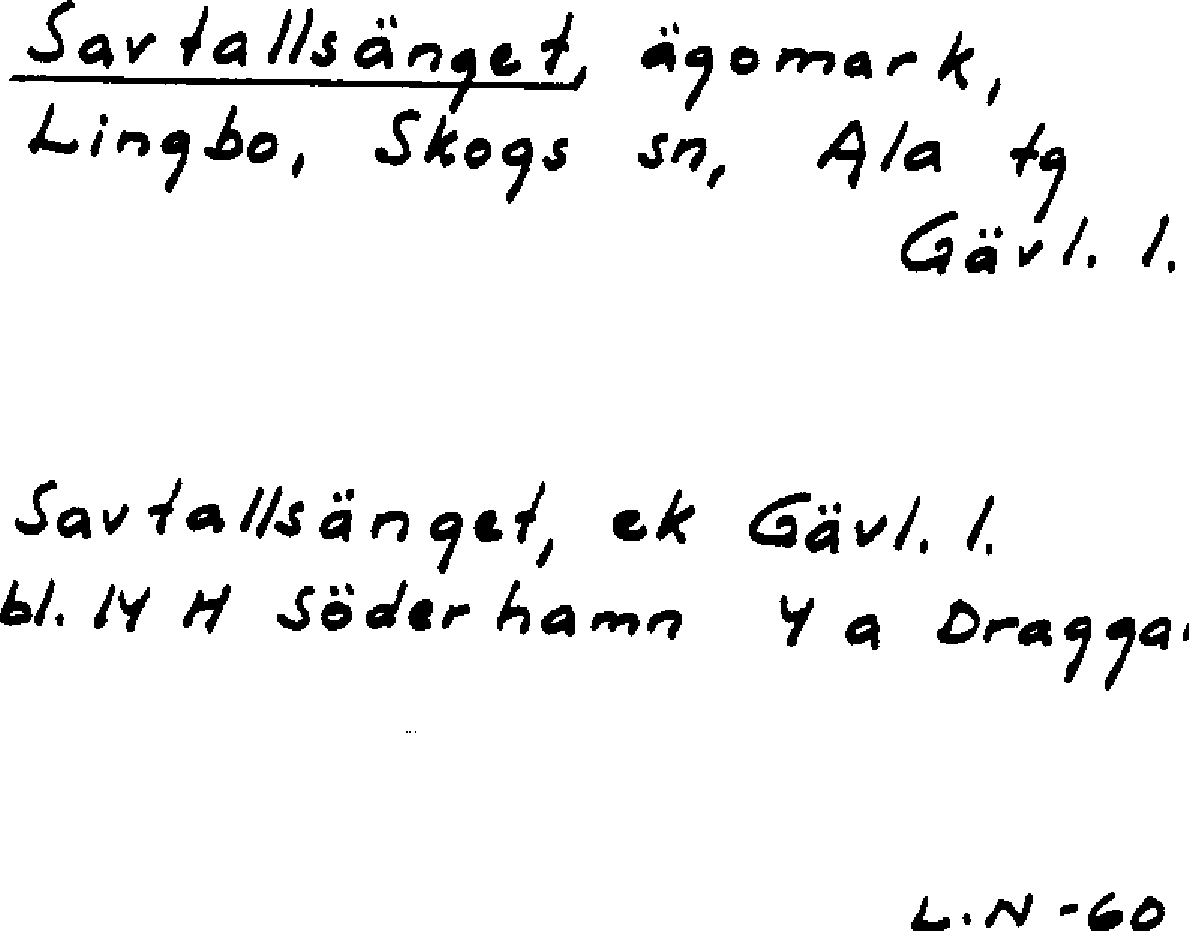 Savtallsänget, ägomark,
Lingbo, Skogs sn, Ala tg
Gävl. l.
Savtallsänget, ek Gävl. l.
bl. 14 H Söderhamn 4 a
L.N -60